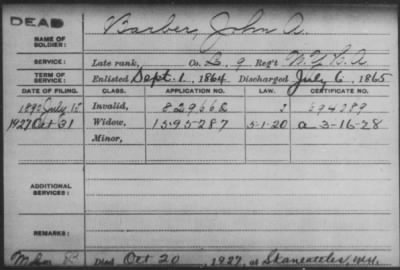 DEAD
NAME OF SOLDIER: Barber, John A.
SERVICE: Late rank, Co. L, 9 Reg't N.Y.H.A.
TERM OF SERVICE: Enlisted Sept. 1, 1864 Discharged July 6, 1865
DATE OF FILING. CLASS. APPLICATION NO. LAW. CERTIFICATE NO.
189 July 15 Invalid, 829668 2 594289
1927 Oct 31 Widow, 1595287 5-1-20 a 3-16-28
Minor,
ADDITIONAL SERVICES:
REMARKS:
Died Oct 20, 1927, at Skaneateles, N.Y.